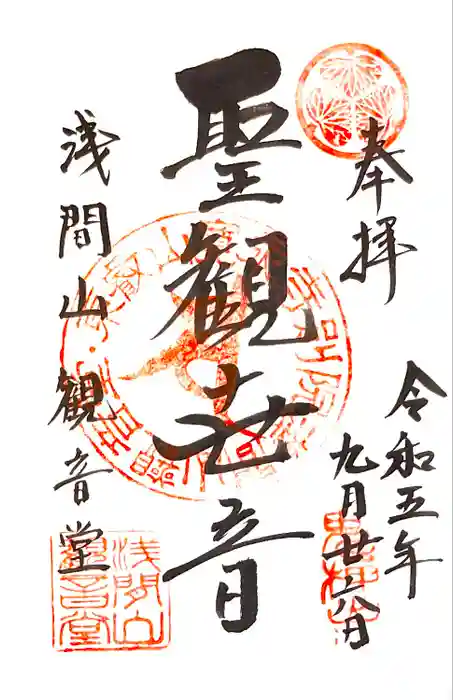 奉拝
令和五年
九月
聖観世音
浅間山観音堂
浅間山
観音堂